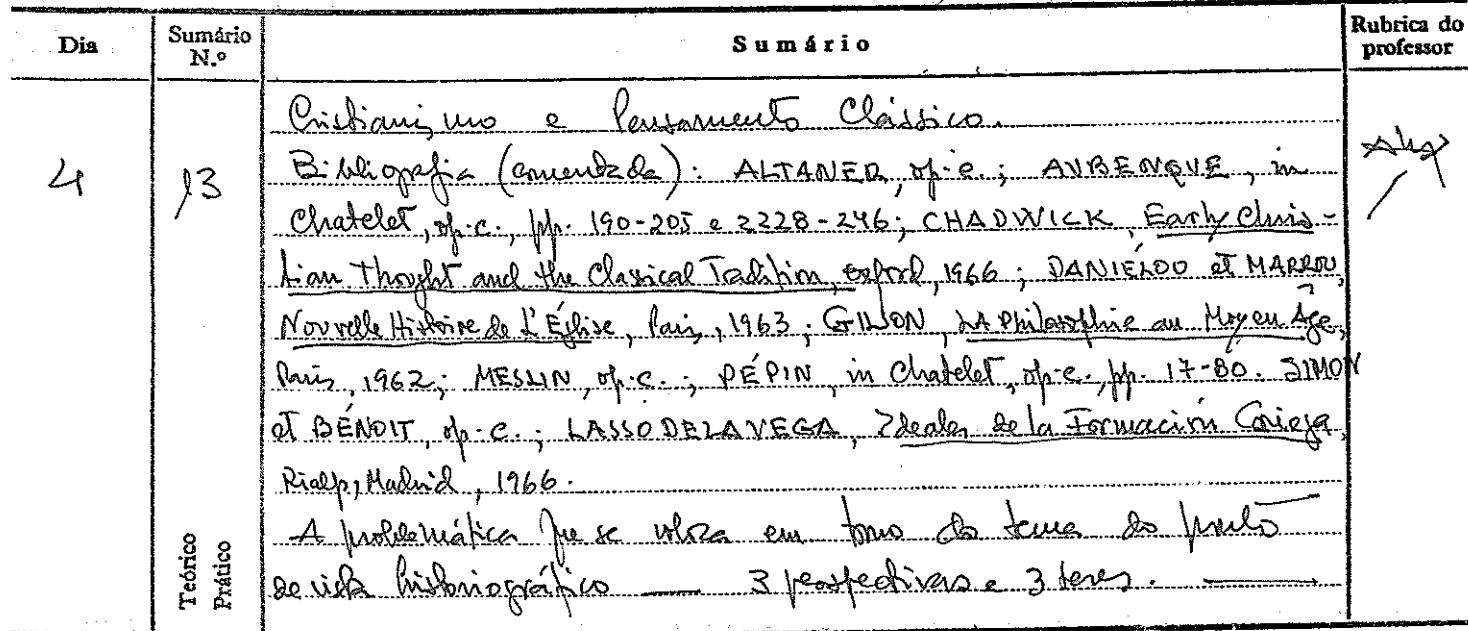 Dia Sumário N.º Sumário Rubrica do professor
4 13
Cristianismo e Pensamento Clássico.
Bibliografia (comentada): ALTANER, op. c.; AUBENQUE, in
Chatelet, op. c., pp. 190-205 e 2228-246; CHADWICK, Early Chris-
tian Thought and the Classical Tradition, Oxford, 1966; DANIÉLOU et MARROU,
Nouvelle Histoire de L'Église, Paris, 1963; GILSON, LA Philosophie au Moyen Âge,
Paris, 1962; MESLIN, op. c.; PÉPIN, in Chatelet, op. c., pp. 17-80. SIMON
et BENOIT, op. c.; LASSO DE LA VEGA, Ideales de la Formación Griega,
Rialp, Madrid, 1966.
A problemática que se em torno do tema do ponto
de vista historiográfico — 3 perspectivas e 3 teses. —
Teórico
Prático